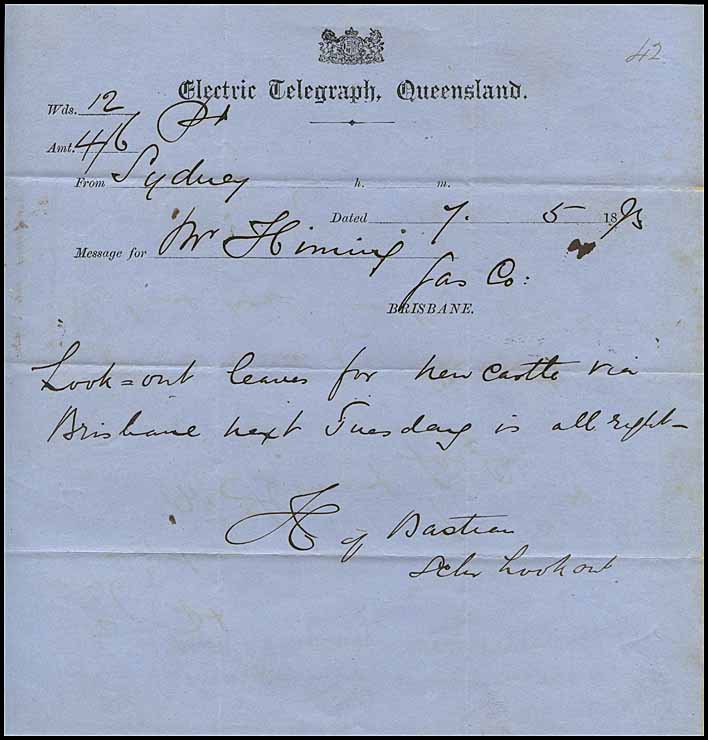 42
Electric Telegraph, Queensland.
Wds. 12
Amt. 4/6
From Sydney h. m.
Dated 7. 5 18
Message for Mr
Gas Co:
BRISBANE.
Look=out leaves for Newcastle via
Brisbane next Tuesday is all right-
H Bastian
Schr Look out.